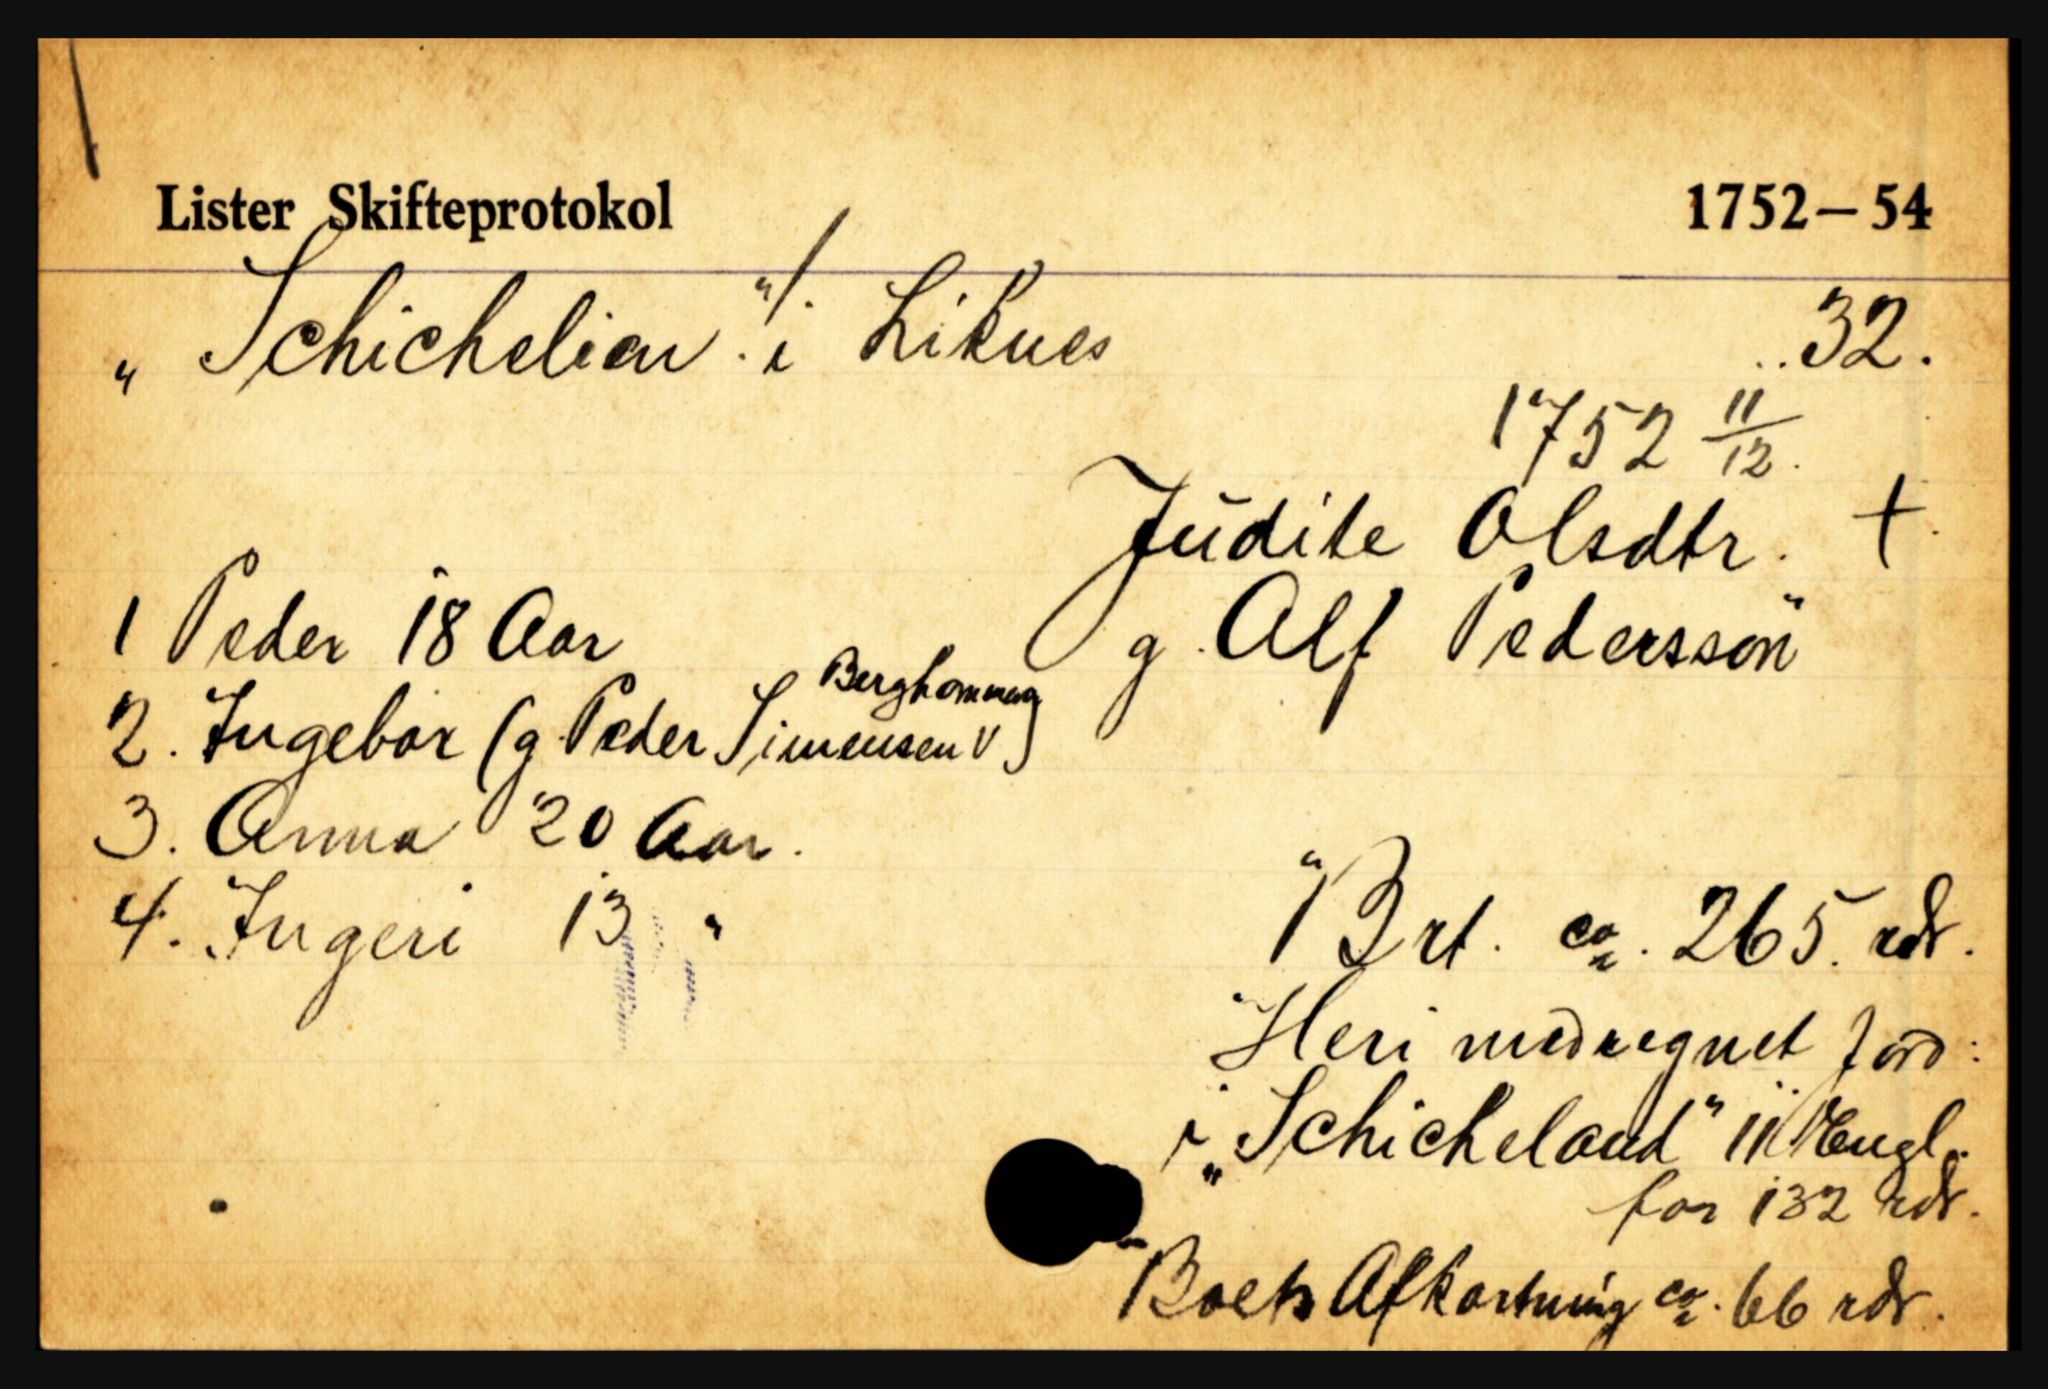 Lister Skifteprotokol 1752–54
„Schichelien" i Liknes 32.
1752 11/12.
Judite Olsdtr. +
g. Alf Pedersson
1 Peder 18 Aar
Berghommen
2. Ingebor (g. Peder Simensen V)
3. Anna 20 Aar.
4. Ingeri 13 "
Brt. ca. 265 rdr.
Heri medregnet Jord:
i „Schicheland" 11 Engl.
for 132 rdr.
Boets Afkortning ca. 66 rdr.